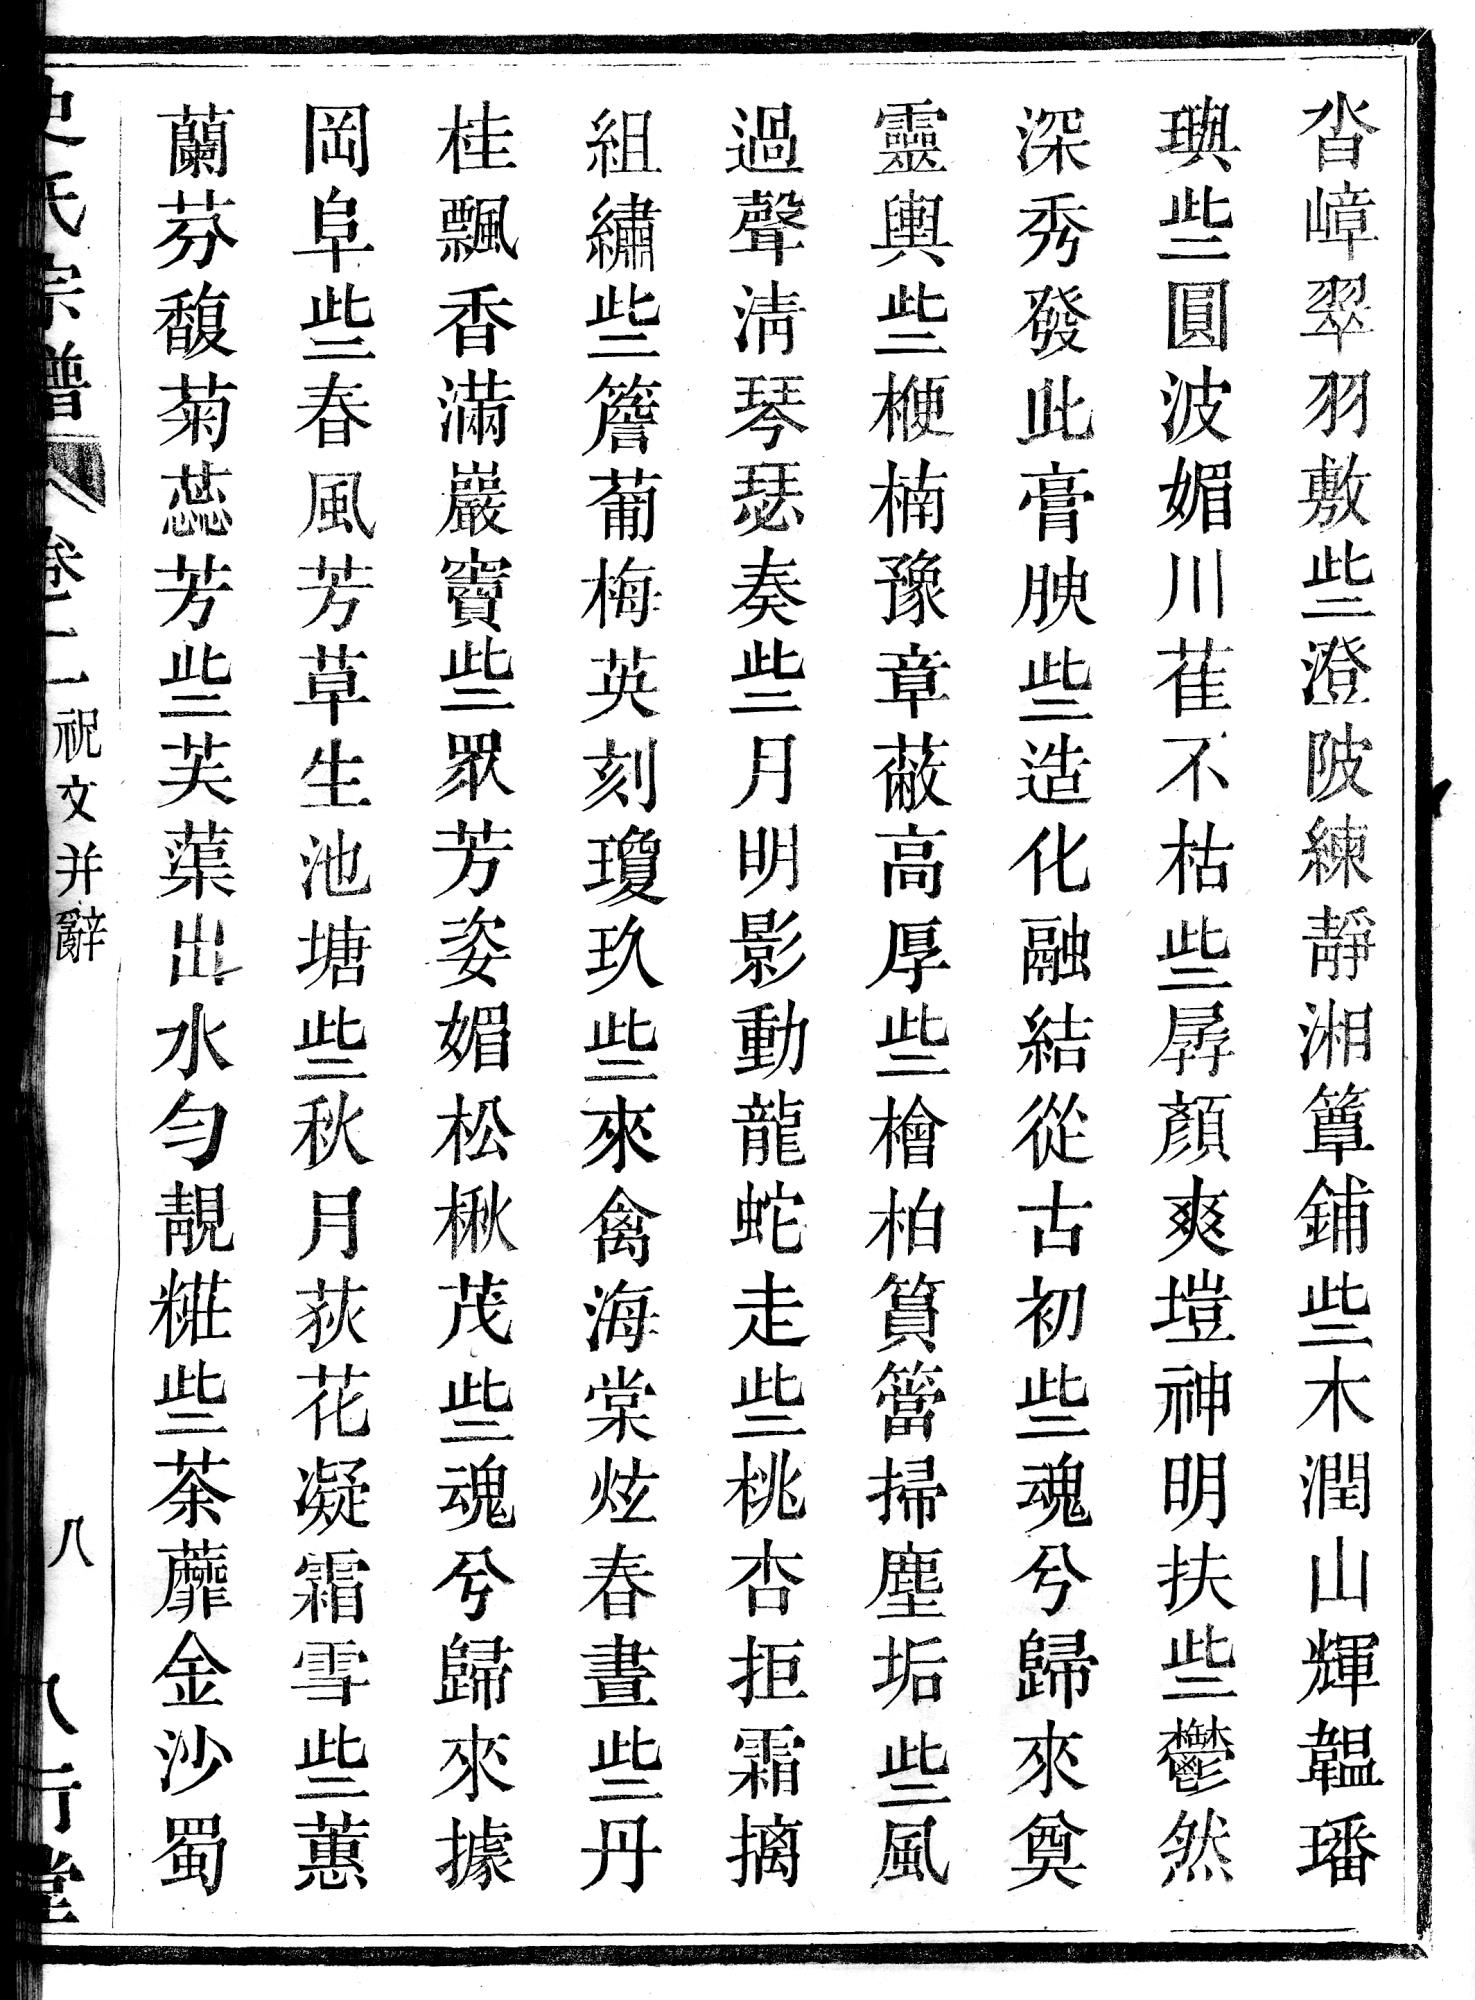 沓嶂翠羽敷些澄陂練靜湘簟鋪些木潤山輝韞璠
璵些圓波媚川萑不枯些孱顏爽塏神明扶些鬱然
深秀發此膏腴些造化融結從古初些魂兮歸來奠
靈輿些楩楠豫章蔽高厚些檜柏篔簹掃塵垢些風
過聲淸琴瑟奏些月明影動龍蛇走些桃杏拒霜摛
組繡些簷蔔梅英刻瓊玖些來禽海棠炫春晝些丹
桂飄香滿巖竇些眾芳姿媚松楸茂些魂兮歸來據
岡阜些春風芳草生池塘些秋月荻花凝霜雪些蕙
蘭芬馥菊蕊芳些芙蕖出水勻靚糚些荼蘼金沙蜀
史氏宗譜
卷二
祝文并辭
八
八行堂